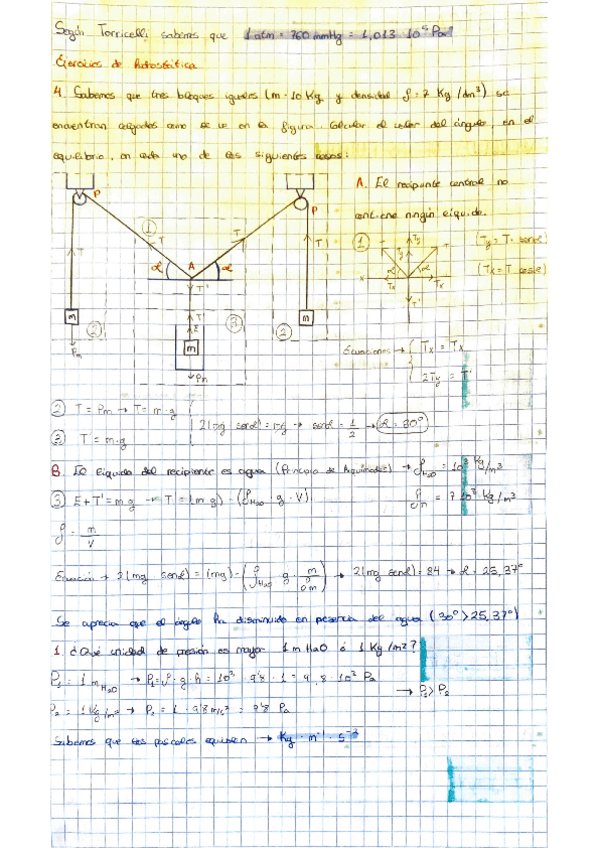 Según Torricelli sabemos que 1 atm = 760 mmHg = 1,013 · 10⁵ Pa
Ejercicios de Hidrostática
4. Sabemos que tres bloques iguales (m = 10 Kg y densidad ρ = 7 Kg/dm³) se
encuentran colgados como se ve en la figura. Calcular el valor del ángulo, en el
equilibrio, en cada uno de los siguientes casos:
A. El recipiente central no
contiene ningún líquido.
P
P
1
T
T
T
T
α
A
α
T'
T'
E
m
m
m
2
3
2
Pm
Pm
1
T
Ty
T
α
α
Tx
Tx
T'
(Ty = T · senα)
(Tx = T cosα)
Ecuaciones → Tx = Tx
2Ty = T'
2 T = Pm → T = m · g
3 T = m · g
2(mg senα) = mg → senα = 1/2 → α = 30°
B. El líquido del recipiente es agua (Principio de Arquímedes) → ρH₂O = 10³ Kg/m³
3 E + T' = mg → T' = (mg) - (ρH₂O · g · V)
ρm = 7 · 10³ Kg/m³
ρ = m/V
Ecuación → 2(mg senα) = (mg) - (ρH₂O g · m/ρm) → 2(mg senα) = 84 → α = 25,37°
Se aprecia que el ángulo ha disminuido en presencia del agua (30° > 25,37°)
1. ¿Qué unidad de presión es mayor 1 m H₂O ó 1 Kg/m²?
P₁ = 1 mH₂O → P₁ = ρ · g · h = 10³ · 9'8 · 1 = 9,8 · 10³ Pa
→ P₁ > P₂
P₂ = 1 Kg/m² → P₂ = 1 · 9'8 m/s² = 9'8 Pa
Sabemos que los pascales equivalen → Kg · m⁻¹ · s⁻²